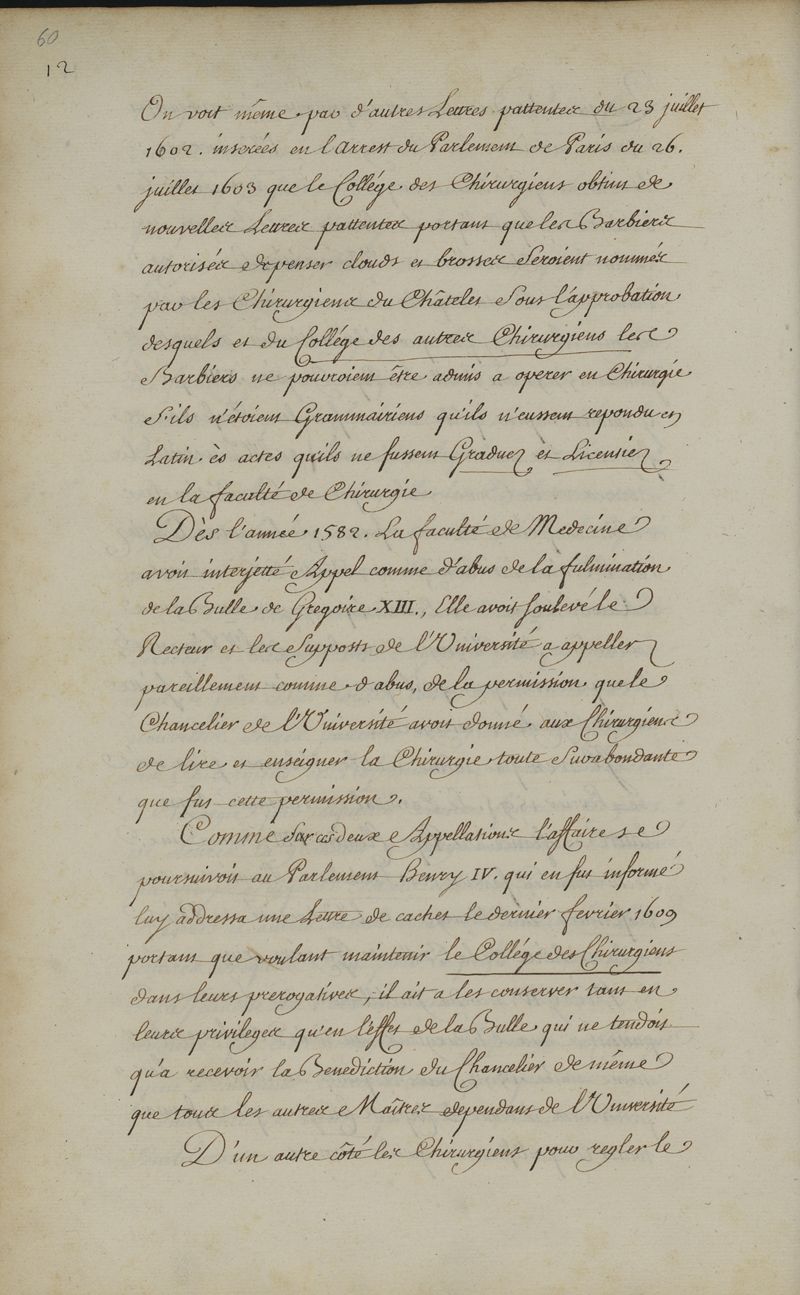 60
12
On voit même par d'autres Lettres pattentes du 23 juillet
1602. inserées en l'Arrest du Parlement de Paris du 26.
juillet 1603 que le Collége des Chirurgiens obtint de
nouvelles Lettres pattentes portant que les Barbiers
autorisés de penser clouds et brosses Seroient nommés
par les Chirurgiens du Châtelet Sous l'approbation
desquels et du Collége des autres Chirurgiens les
Barbiers ne pouvroient être admis a operer en Chirurgie
S'ils n'étoient Grammairiens qu'ils n'eussent repondu en
Latin ès actes qu'ils ne fussent Graduez et Licensiez
en la faculté de Chirurgie
Dès l'année 1582. La faculté de Medecine
avoit interjetté Appel comme d'abus de la fulmination
de la Bulle de Gregoire XIII., Elle avoit soulevé le
Recteur et les Supposts de l'Université a appeller
pareillement comme d'abus, de la permission que le
Chancelier de l'Université avoit donné aux Chirurgiens
de lire et enseigner la Chirurgie toute Surabondante
que fut cette permission.
Comme sur ces deux Appellations l'affaire se
poursuivoit au Parlement Henry IV. qui en fut informé
luy addressa une Lettre de cachet le dernier fevrier 1609
portant que voulant maintenir le Collége des Chirurgiens
dans leurs prerogatives, il ait a les conserver tant en
leurs privileges qu'en l'effet de la Bulle qui ne tendoit
qu'a recevoir la Benediction du Chancelier de même
que tous les autres Maîtres dependans de l'Université
D'un autre côté les Chirurgiens pour regler le